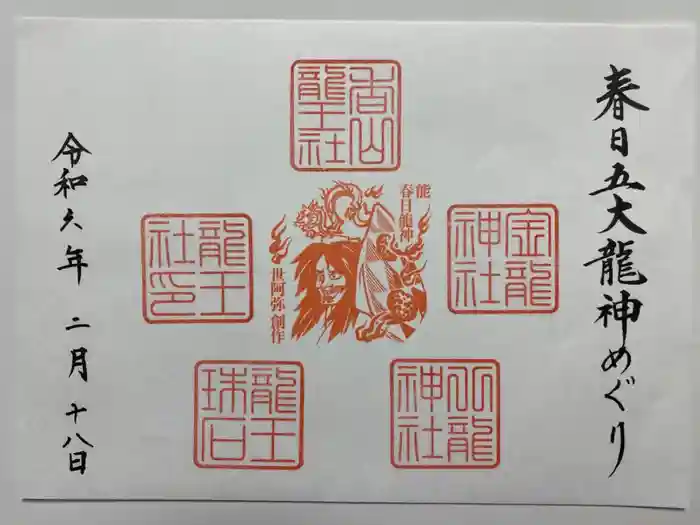 春日五大龍神めぐり
香山
龍王社
金龍
神社
能
春日龍神
世阿弥 創作
龍王
社印
龍王
珠石
令和六年 二月 十八日